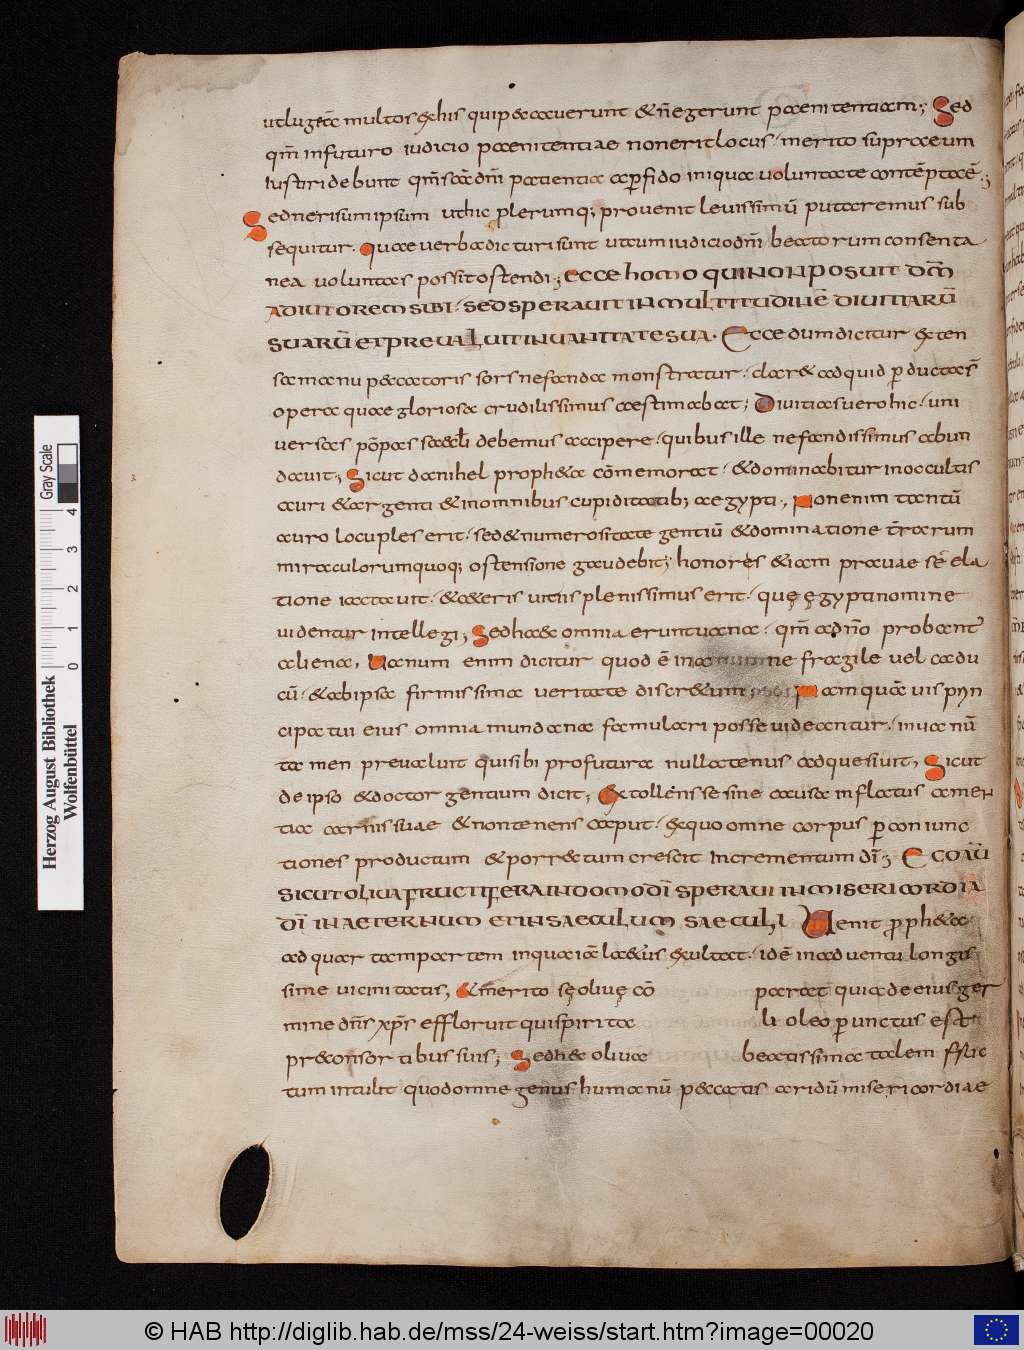 ut lugeat multos ex his qui peccaverunt & n̄ egerunt paenitentiam; Sed
qm̄ in futuro iudicio paenitentiae non erit locus. merito supra eum
iusti ridebunt qm̄ sc̄ā dn̄i patientia a perfido iniqua voluntate contēpta ē;
Sed ne risum ipsum ut hic plerumq; provenit levissimū putaremus sub
sequitur. Quae verba dicturi sunt ut cum iudicio dn̄i beatorum consenta
nea voluntas possit ostendi; Ecce homo qui non posuit dm̄
adiutorem sibi. sed speravit in multitudinē divitiarū
suarū et prevaluit in vanitate sua. Ecce dum dicitur exten
sa manu peccatoris sors nefanda monstratur. clar& ad quid p ductas
opera quae gloriosa crudilissimus aestimabat; Divitias vero hic. uni
versas pōpas saecli debemus accipere. quibus ille nefandissimus abun
davit; Sicut danihel proph&a cōmemorat. & dominabitur in occultis
auri & argenti & in omnibus cupiditatib; aegypti; Non enim tantū
auro locuples erit. sed & numerositate gentiū & dominatione t̄rarum
miraculorum quoq; ostensione gaudebit; honores & iam pravae se ela
tione iactavit. & c&eris vitiis plenissimus erit. quę ęgypti nomine
videntur intellegi; Sed haec omnia erunt vana. qm̄ a dn̄o probant
aliena; Vanum enim dicitur quod ē ina ne fragile vel cadu
cū. & ab ipsa firmissima veritate discr&um; Nam quāvis prin
cipatui eius omnia mundana famulari posse videantur. in vanū
tamen prevaluit qui sibi profutura nullatenus adquesivit; Sicut
de ipso & doctor gentium dicit; Extollens se sine causa inflatus a men
tia carnis suae & non tenens caput. ex quo omne corpus p coniunc
tiones productum & porrectum crescit incrementum dī; Ego autē
sicut oliva fructifera in domo dī speravi in misericordia
dī in aeternum et in saeculum saeculi Venit proph&a
ad quartam partem in qua iā la&us exultat. idē in adventu longis
sime vicinitatis; & merito sę olivę cō parat quia de eius ger
mine dn̄s xp̄s effloruit qui spirita li oleo p unctus est
pre consortibus suis; Sed haec oliva beatissima talem fruc
tum intulit quod omne genus humanū peccatis aridū misericordiae
Herzog August Bibliothek
Wolfenbüttel
0 1 2 3 4
Gray Scale
© HAB http://diglib.hab.de/mss/24-weiss/start.htm?image=00020